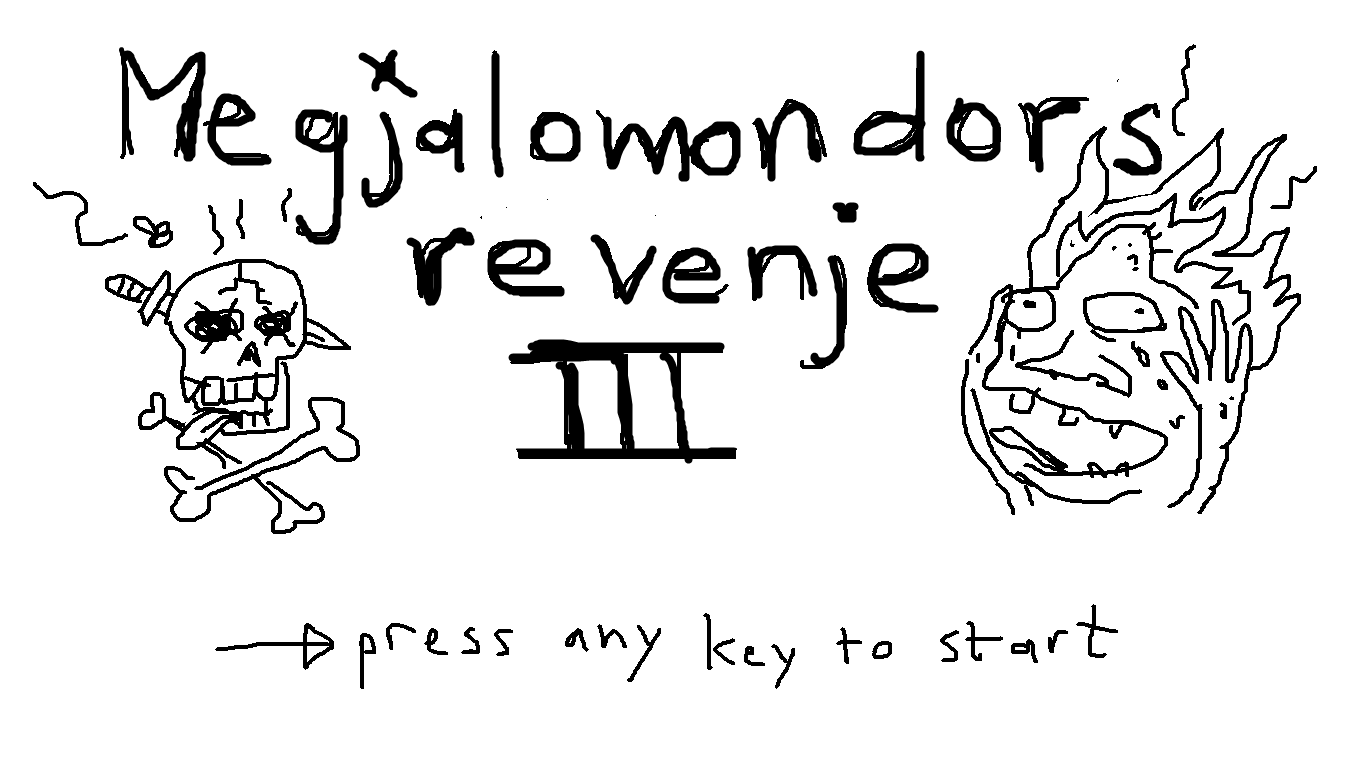 Megjalomondors
revenje
III
press any key to start